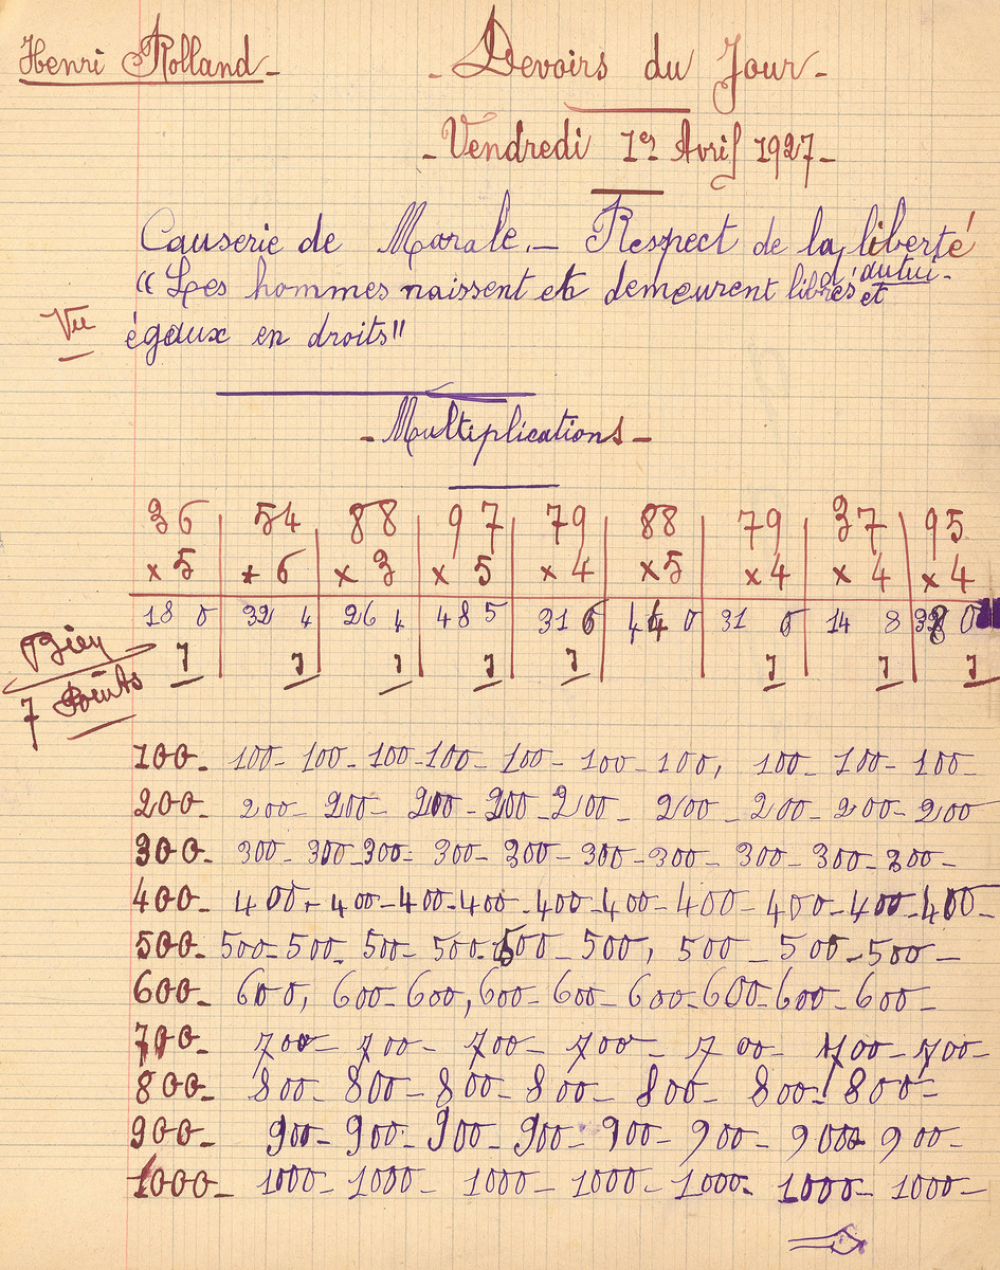 Henri Rolland - - Devoirs du Jour -
- Vendredi 1er Avril 1927 -
Causerie de Morale. — Respect de la liberté
d'autrui.
"Les hommes naissent et demeurent libres et
Vu
égaux en droits"
- Multiplications -
36 54 88 97 79 88 79 37 95
x 5 x 6 x 3 x 5 x 4 x 5 x 4 x 4 x 4
18 0 32 4 26 4 48 5 31 6 44 0 31 6 14 8 38 0
Bien 1 1 1 1 1 1 1 1
7 Points
100- 100- 100- 100- 100- 100- 100- 100, 100- 100- 100-
200- 200- 200- 200- 200- 200- 200- 200- 200- 200
300- 300- 300- 300- 300- 300- 300- 300- 300- 300- 300-
400- 400- 400- 400- 400- 400- 400- 400- 400- 400- 400-
500- 500- 500- 500- 500- 500- 500, 500- 500- 500-
600- 600, 600- 600, 600- 600- 600- 600- 600- 600-
700- 700- 700- 700- 700- 700- 700- 700-
800- 800- 800- 800- 800- 800- 800! 800-
900- 900- 900- 900- 900- 900- 900- 900- 900-
1000- 1000- 1000- 1000- 1000- 1000- 1000- 1000-